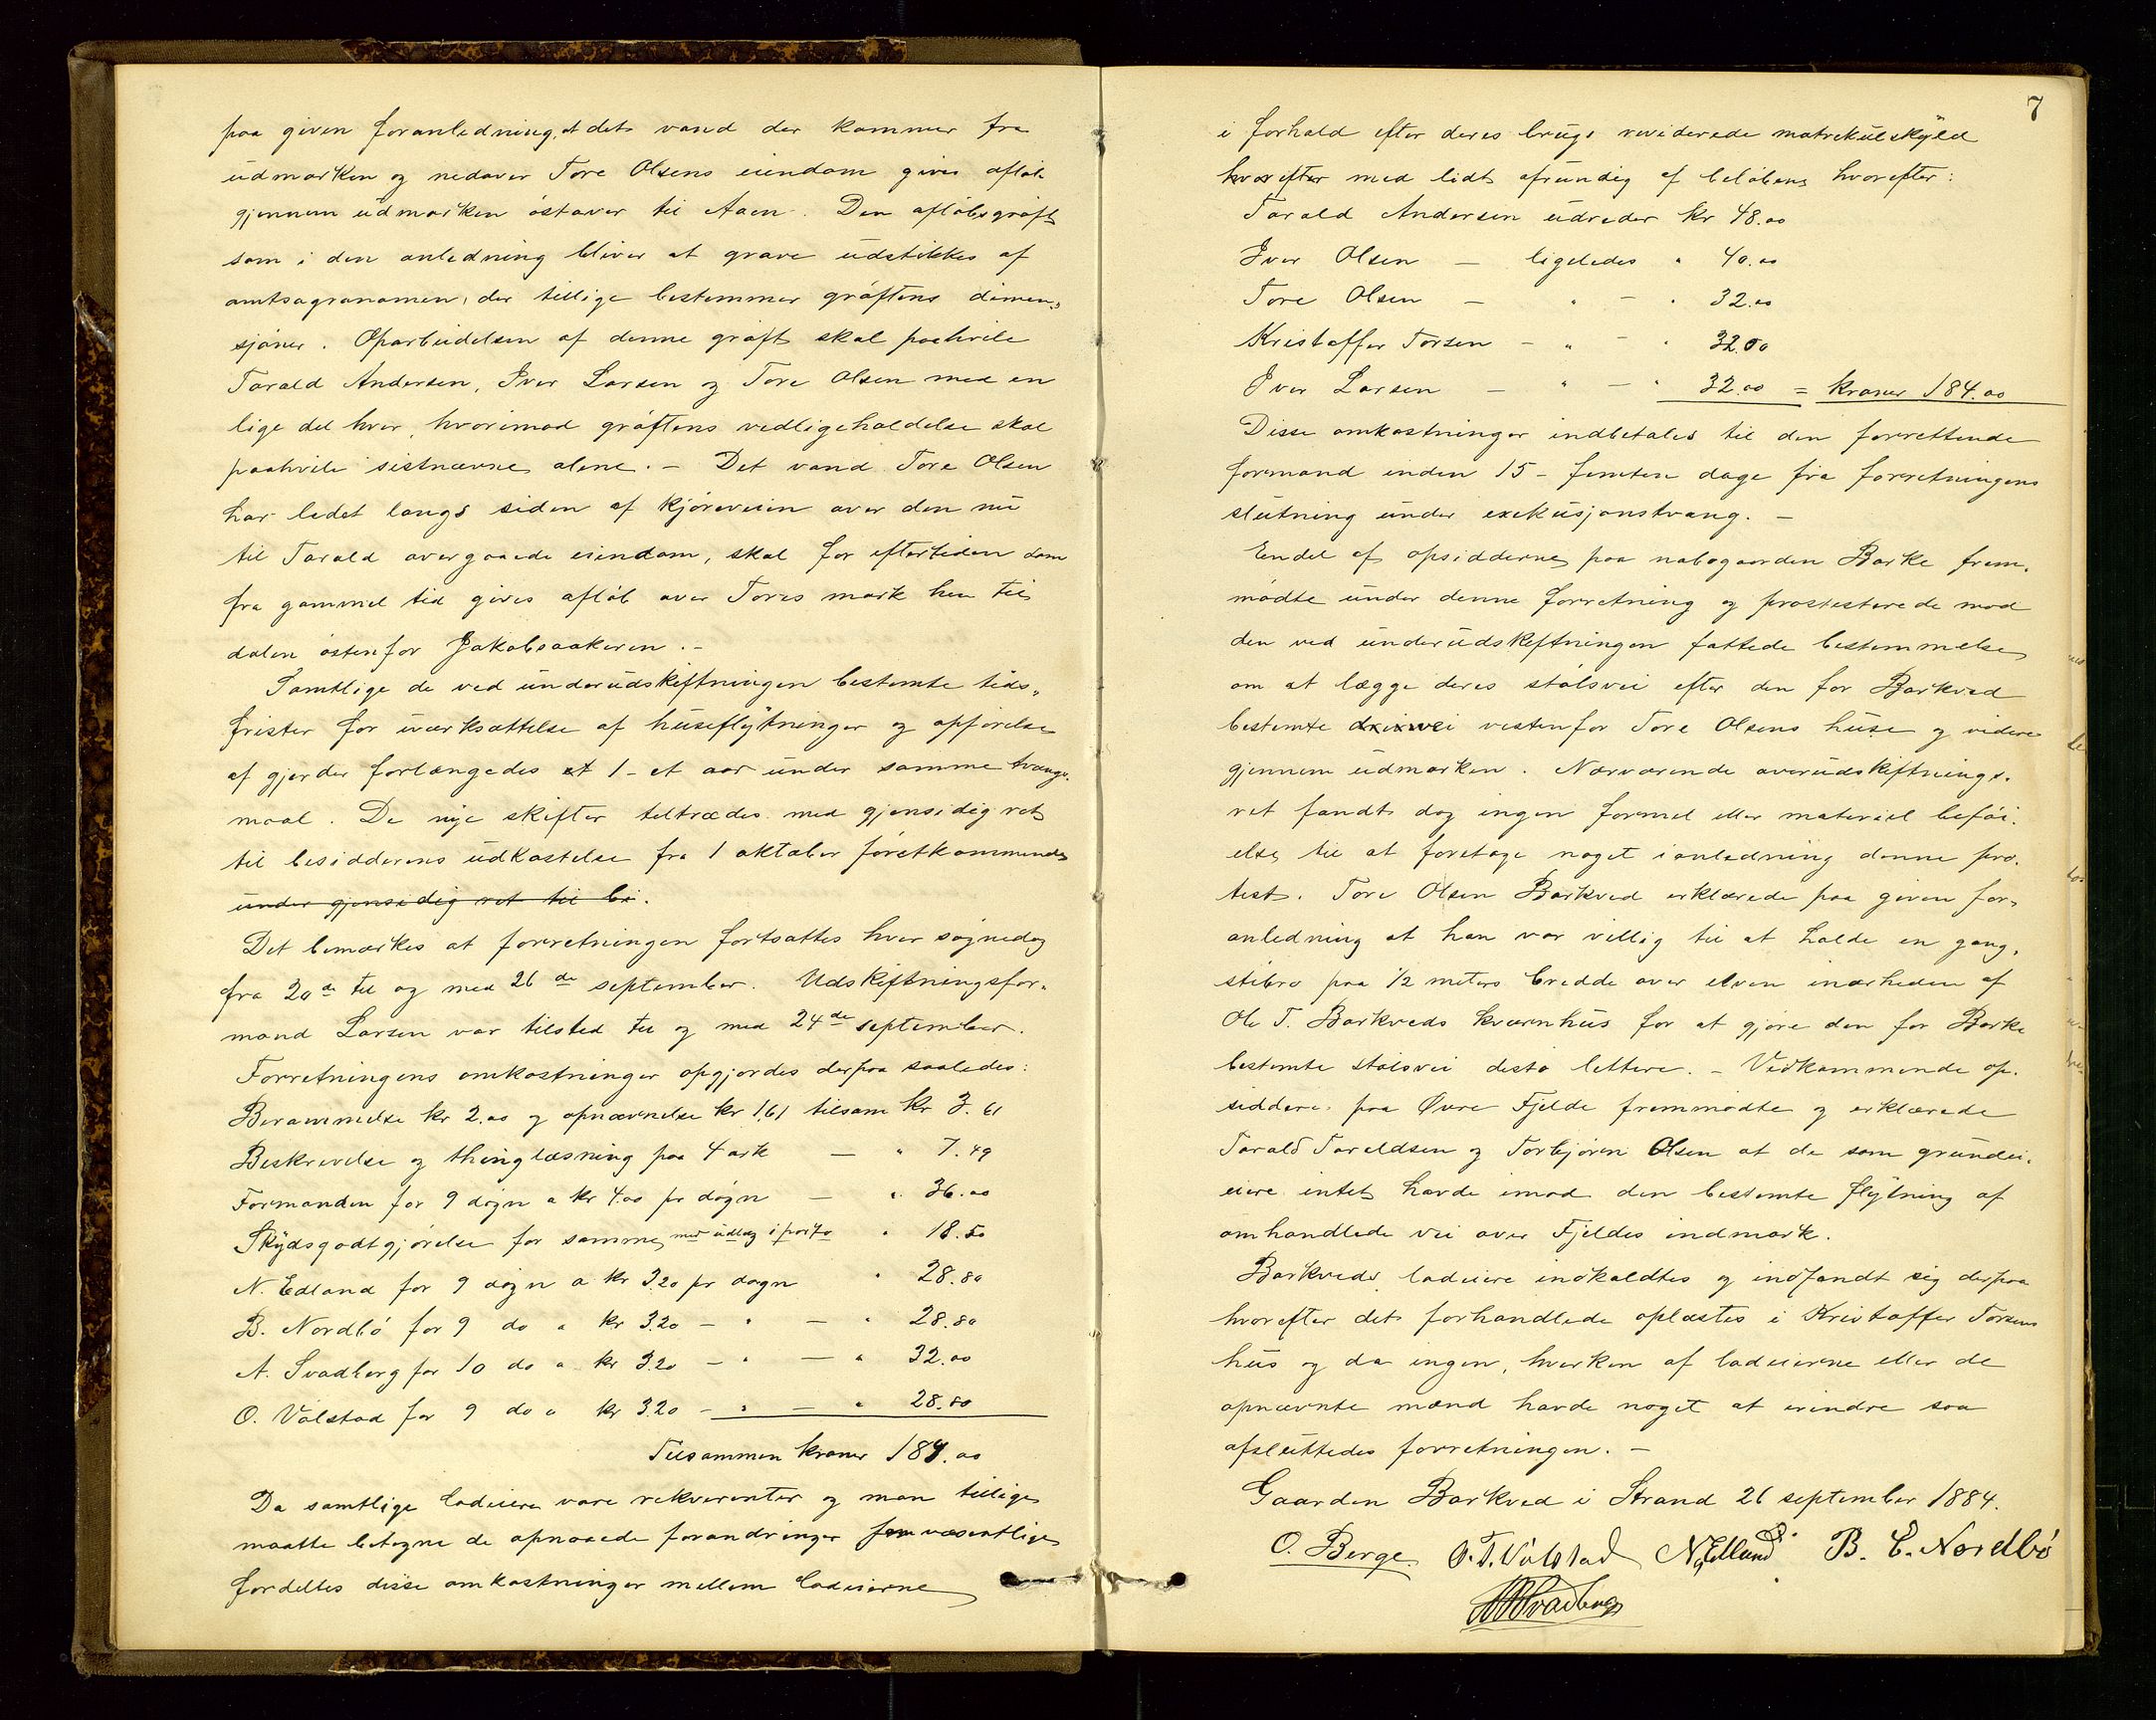 paa given foranledning, at det vand der kommer fra
udmarken og nedover Tore Olsens eiendom gives afløb
gjennem udmarken østover til Aaen. Den afløbsgrøft
som i den anledning bliver at grave udstikkes af
amtsagronomen, der tillige bestemmer grøftens dimen-
sjoner. Oparbeidelsen af denne grøft skal paahvile
Tarald Andersen, Iver Larsen og Tore Olsen med en
lige del hver, hvorimod grøftens vedligeholdelse skal
paahvile sistnævne alene. – Det vand Tore Olsen
har ledet langs siden af kjøreveien over den nu
til Tarald overgaaede eiendom, skal for eftertiden som
fra gammel tid gives afløb over Tores mark hen til
dalen østenfor Jakobsaakeren. –
Samtlige de ved underudskiftningen bestemte tids-
frister for iværksættelse af huseflytninger og opførelse
af gjerder forlængedes et 1 - et aar under samme tvangs-
maal. De nye skifter tiltrædes med gjensidig ret
til besidderens udkastelse fra 1 oktober førstkommende
under gjensidig ret til be.
Det bemærkes at forretningen fortsattes hver søgnedag
fra 20de til og med 26de september. Udskiftningsfor-
mand Larsen var tilsted til og med 24de september.
Forretningens omkostninger opgjordes derpaa saaledes:
Berammelse kr 2.00 og opnævnelse kr 1,61 tilsam kr 3.61
Beskrivelse og thinglæsning paa 4 ark — " 7.49
Formanden for 9 døgn a kr 4.00 pr døgn — " 36.00
Skydsgodtgjørelse for samme med udlæg i porto " 18.50
N. Edland for 9 døgn a kr 3.20 pr døgn " 28.80
B. Nordbø for 9 do a kr 3.20 – " — " 28.80
A. Svadberg for 10 do a kr 3.20 – " — " 32.00
O. Valstad for 9 do a kr 3.20 – " — " 28.80
Tilsammen kroner 184.00
Da samtlige lodeiere vare rekverenter og man tillige
maatte betegne de opnaaede forandringer som væsentlige
fordeltes disse omkostninger mellem lodeierne
7
i forhold efter deres brugs reviderede matrikulskyld
hvorefter med lidt afrundig af beløbene hvorefter:
Tarald Andersen udreder kr 48.00
Iver Olsen — ligeledes " 40.00
Tore Olsen — " – " 32.00
Kristoffer Torsen – " – " 32.00
Iver Larsen — " – " 32.00 = kroner 184.00
Disse omkostninger indbetales til den forrettende
formand inden 15 - femten dage fra forretningens
slutning under exekusjonstvang. –
Endel af opsidderne paa nabogaarden Barke frem-
mødte under denne forretning og prostesterede mod
den ved underudskiftningen fattede bestemmelse
om at lægge deres stølsvei efter den for Barkved
bestemte dreivei vestenfor Tore Olsens huse og videre
gjennem udmarken. Nærværende overudskiftnings-
ret fandt dog ingen formel eller materiel beføi-
else til at foretage noget i anledning denne pro-
test. Tore Olsen Barkved erklærede paa given for-
anledning at han var villig til at holde en gang-
stibro paa 1/2 meters bredde over elven i nærheden af
Ole T. Barkveds kværnhus for at gjøre den for Barke
bestemte stølsvei desto lettere. – Vedkommende op-
siddere paa Øvre Fjelde fremmødte og erklærede
Tarald Taraldsen og Torbjørn Olsen at de som grundei-
eiere intet havde imod den bestemte flytning af
omhandlede vei over Fjeldes indmark.
Barkveds lodeiere indkaldtes og indfandt sig derpaa
hvorefter det forhandlede oplæstes i Kristoffer Torsens
hus og da ingen, hverken af lodeierne eller de
opnævnte mænd havde noget at erindre saa
afsluttedes forretningen. –
Gaarden Barkved i Strand 26 september 1884.
O. Berge O. T. Valstad N. Edland B. E. Nordbø
Svadberg